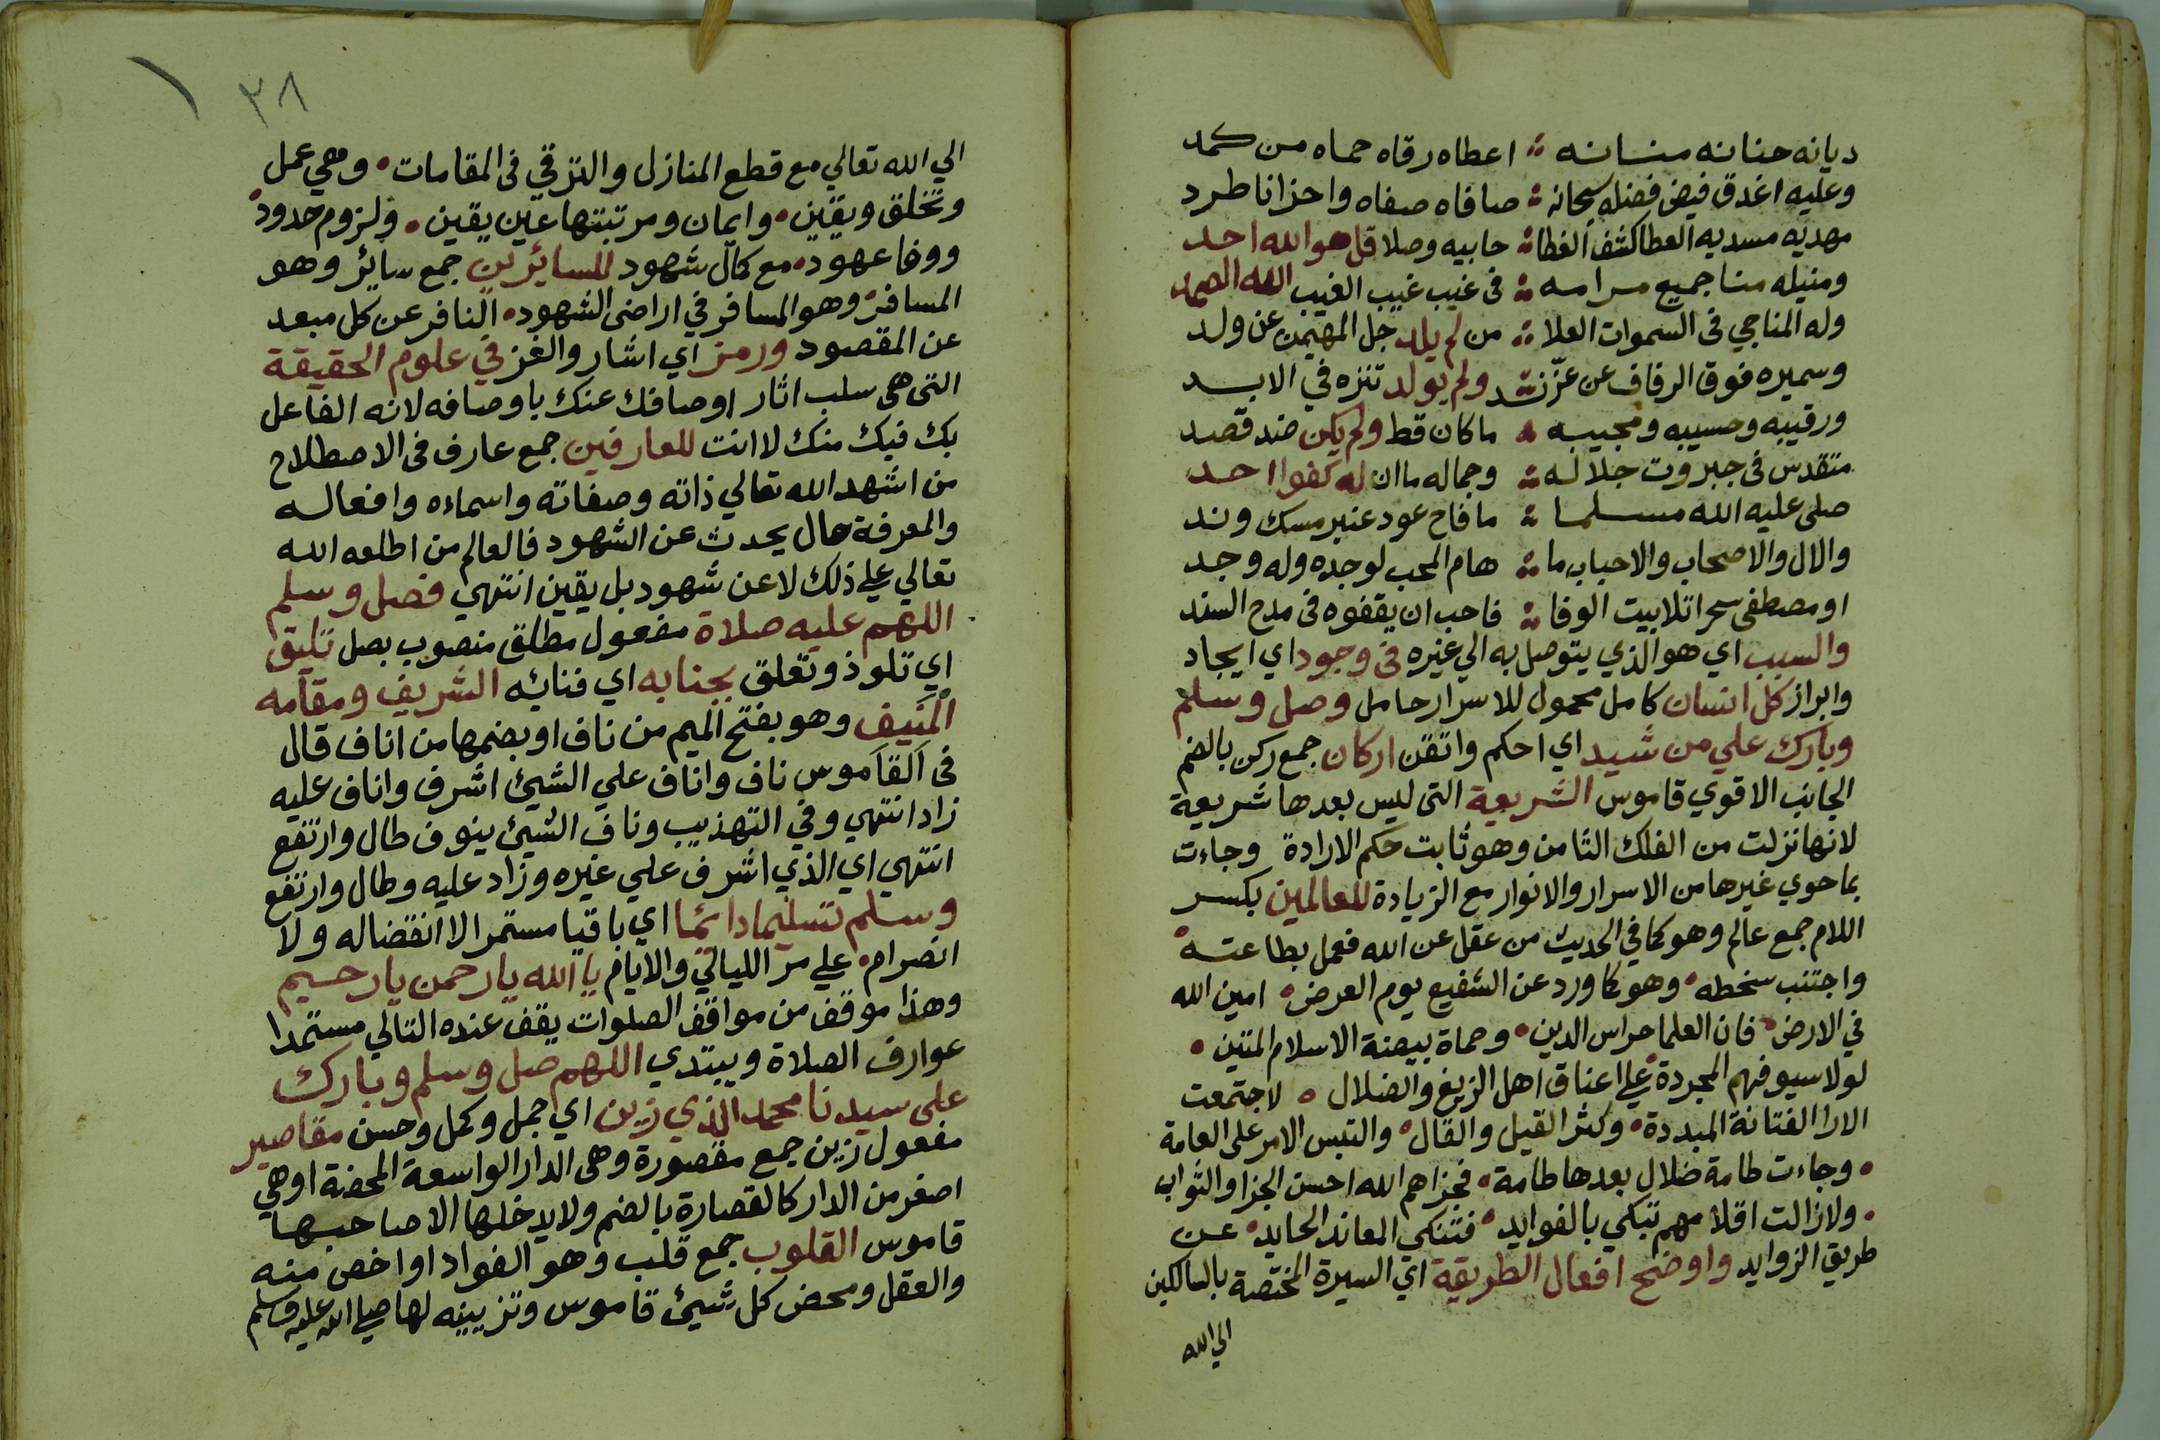 ديانه حنانه منانه ؞ اعطاه رقاه حماه من كمد
وعليه اغدق فيض فضله سبحانه ؞ صافاه صفاه واحزانا طرد
مهديه مسديه العطا كشف الغطا ؞ حابيه وصلا قل هو الله احد
ومنيله منا جميع مرامه ؞ في غيب غيب الغيب الله الصمد
وله المناجي في السموات العلا ؞ من لم يلد جل المهيمن عن ولد
وسميره فوق الرفاف عن عزز ولم يولد تنزه في الابد
ورقيبه وحسيبه ومجيبه ؞ ما كان قط ولم يكن ضد قصد
متقدس في جبروت جلاله ؞ وجماله ما ان له كفوا احد
صلى عليه الله مسلما ؞ ما فاح عود عنبر مسك وند
والال والاصحاب والاحباب ما ؞ هام المحب لوجده وله وجد
او مصطفى سحرا تلا بيت الوفا ؞ فاحب ان يقفوه في مدح السند
والسبب اي هو الذي يتوصل به الي غيره في وجود اي ايجاد
وابراز كل انسان كامل محمول للاسرار حامل وصل وسلم
وبارك علي من شيد اي احكم واتقن اركان جمع ركن بالضم
الجانب الاقوي قاموس الشريعة التي ليس بعدها شريعة
لانها نزلت من الفلك الثامن وهو ثابت حكم الارادة وجاءت
بما حوي غيرها من الاسرار والانوار مع الزيادة للعالمين بكسر
اللام جمع عالم وهو كما في الحديث من عقل عن الله فعمل بطاعته
واجتنب سخطه • وهو كما ورد عن الشفيع يوم العرض • امين الله
في الارض • فان العلما حراس الدين • وحماة بيضة الاسلام المتين •
لولا سيوفهم المجردة علي اعناق اهل الزيغ والضلال • لاجتمعت
الارا الفتانة المبددة • وكثر القيل والقال • والتبس الامر على العامة
• وجاءت طامة ضلال بعدها طامة • فجزاهم الله احسن الجزا والثواب
• ولازالت اقلامهم تبكي بالفوايد • فتنكي المعاند الحايد • عن
طريق الزوايد واوضح افعال الطريقة اي السيرة المختصة بالسالكين
الي الله
٣٨
١
الي الله تعالي مع قطع المنازل والترقي في المقامات • وهي عمل
وتخلق ويقين • وايمان ومرتبتها عين يقين • ولزوم حدود •
ووفا عهود • مع كمال شهود للسائرين جمع سائر وهو
المسافر • وهو المسافر في اراضي الشهود • النافر عن كل مبعد
عن المقصود ورمز اي اشار والغز في علوم الحقيقة
التي هي سلب اثار اوصافك عنك باوصافه لانه الفاعل
بك فيك منك لا انت للعارفين جمع عارف في الاصطلاح
من اشهد الله تعالي ذاته وصفاته واسماءه وافعاله
والمعرفة حال يحدث عن الشهود فالعالم من اطلعه الله
تعالي علي ذلك لا عن شهود بل يقين انتهي فصل وسلم
اللهم عليه صلاة مفعول مطلق منصوب بصل تليق
اي تلوذ وتعلق بجنابه اي فنائه الشريف ومقامه
المنيف وهو بفتح الميم من ناف او بضمها من اناف قال
في القاموس ناف واناف علي الشيئ اشرف واناف عليه
زاد انتهي وفي التهذيب وناف الشيئ ينوف طال وارتفع
انتهي اي الذي اشرف علي غيره وزاد عليه وطال وارتفع
وسلم تسليما دائما اي باقيا مستمرا لا انقضا له ولا
انصرام • علي مر الليالي والايام يا الله يا رحمن يا رحيم
وهذا موقف من مواقف الصلوات يقف عنده التالي مستمدا
عوارف الصلاة ويبتدي اللهم صل وسلم وبارك
على سيدنا محمد الذي زين اي جمل وكمل وحسن مقاصير
مفعول زين جمع مقصورة وهي الدار الواسعة المحصنة او هي
اصغر من الدار كالقصارة بالضم ولا يدخلها الا صاحبها
قاموس القلوب جمع قلب وهو الفواد او اخص منه
والعقل ومحض كل شيئ قاموس وتزيينه لها صلي الله عليه وسلم